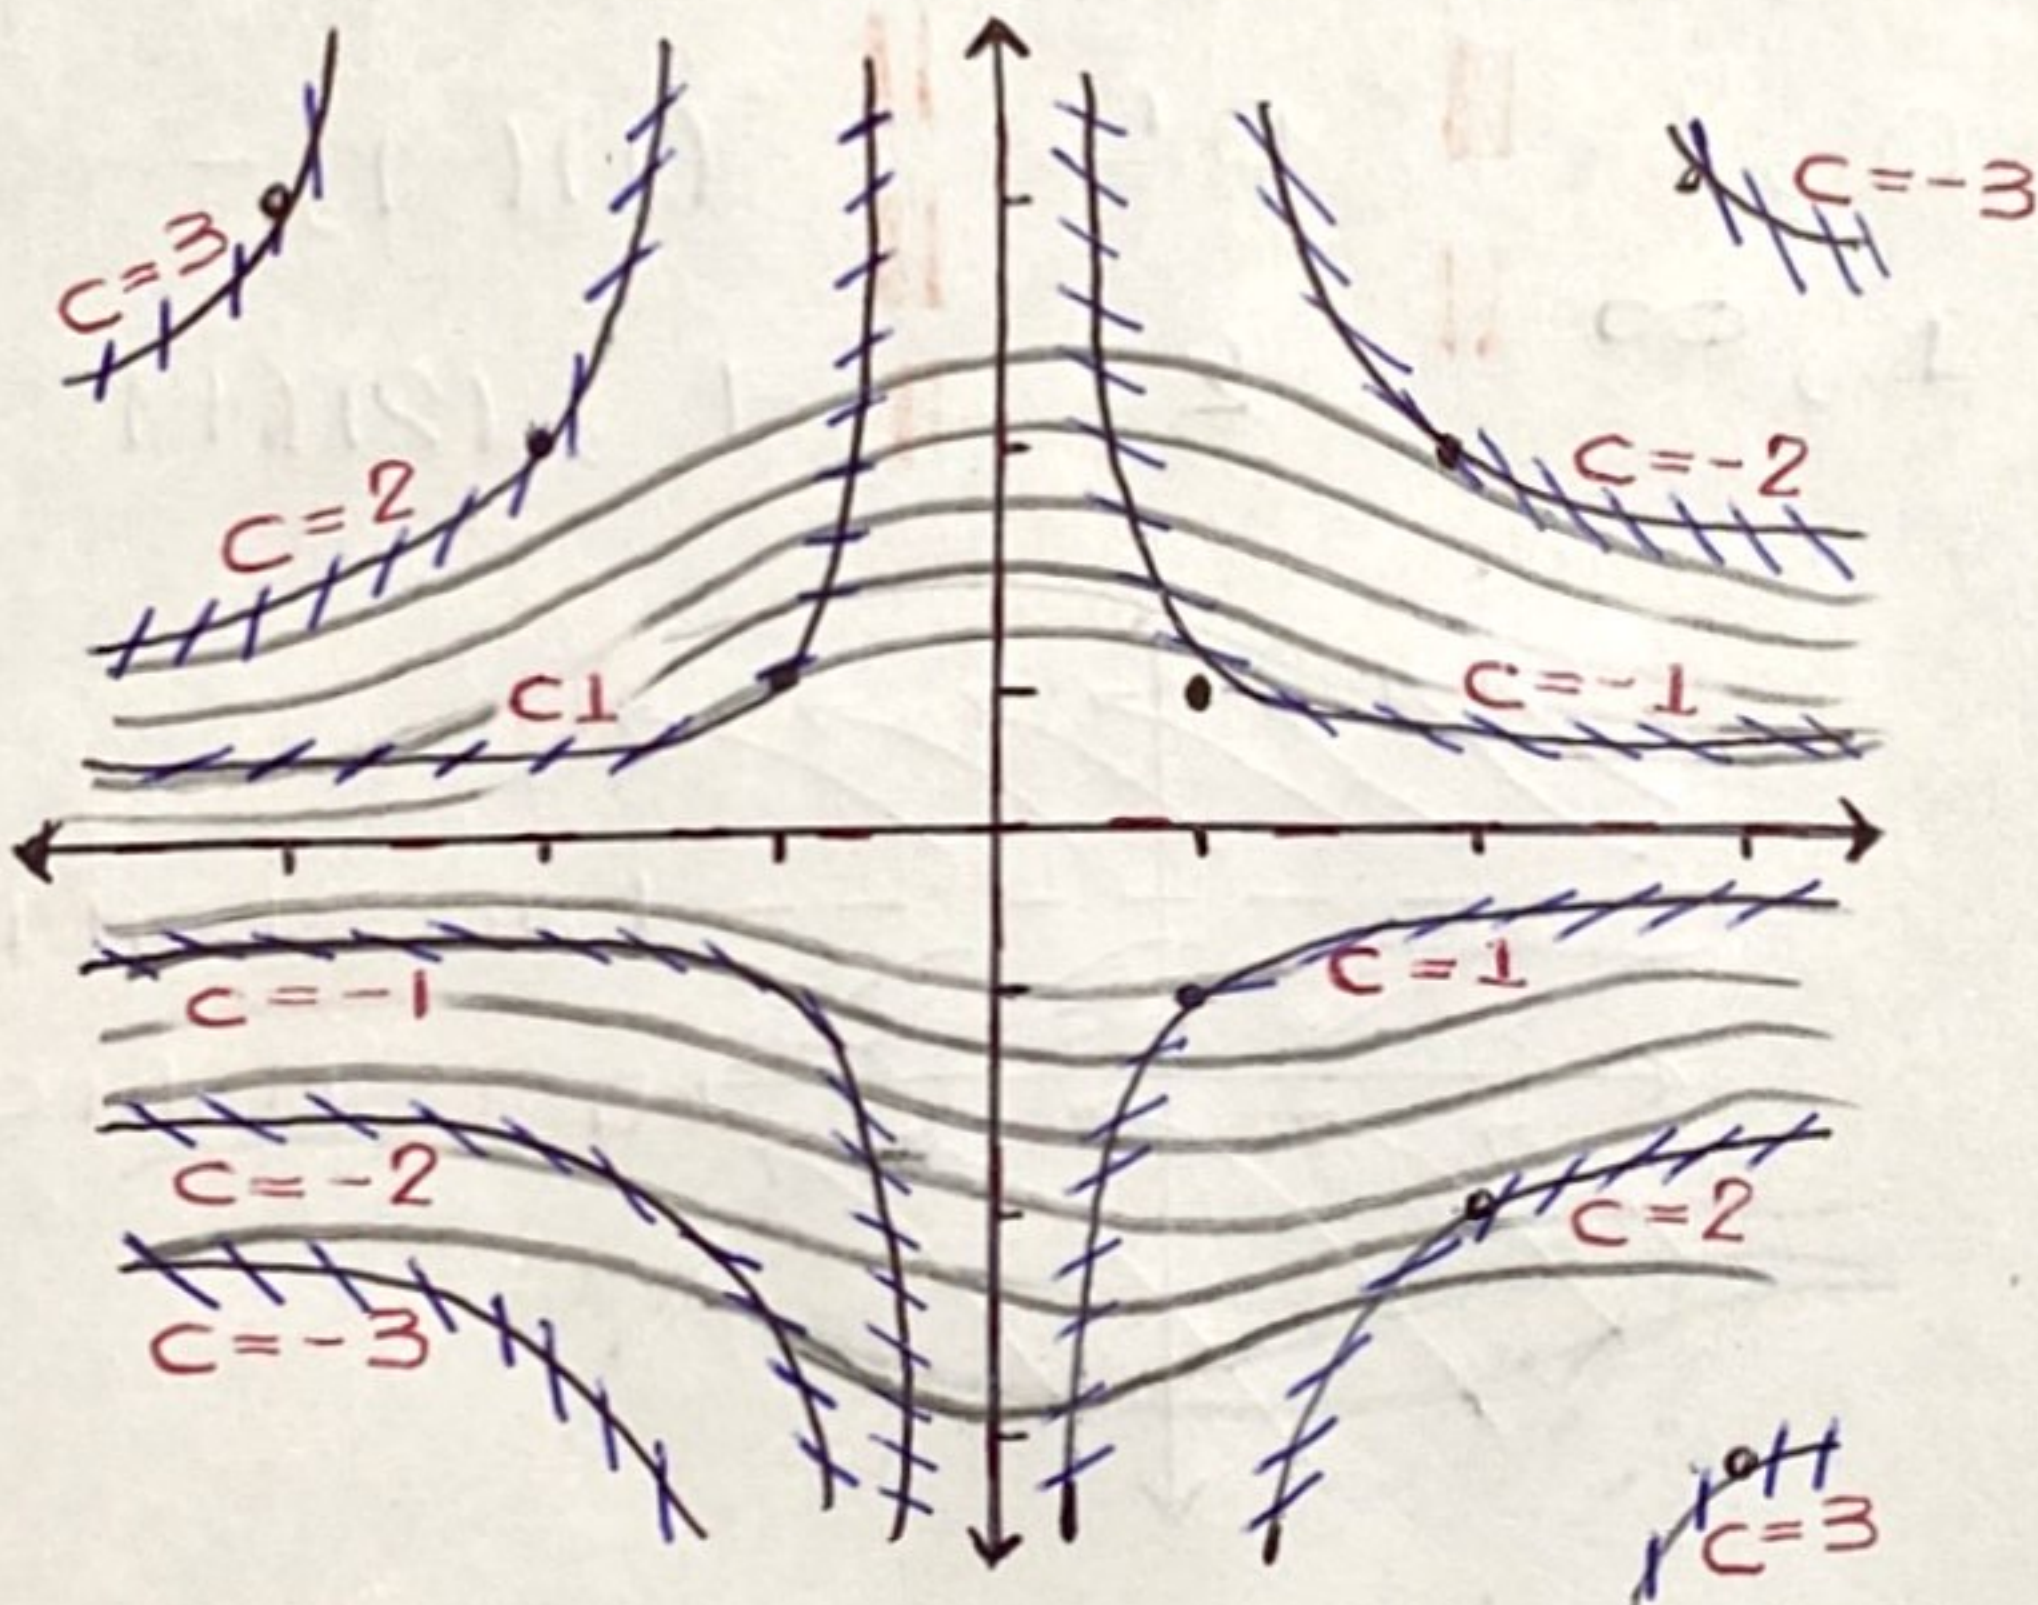 C=3
C=-3
C=2
C=-2
C1
C=-1
C=1
C=-1
C=-2
C=2
C=-3
C=3